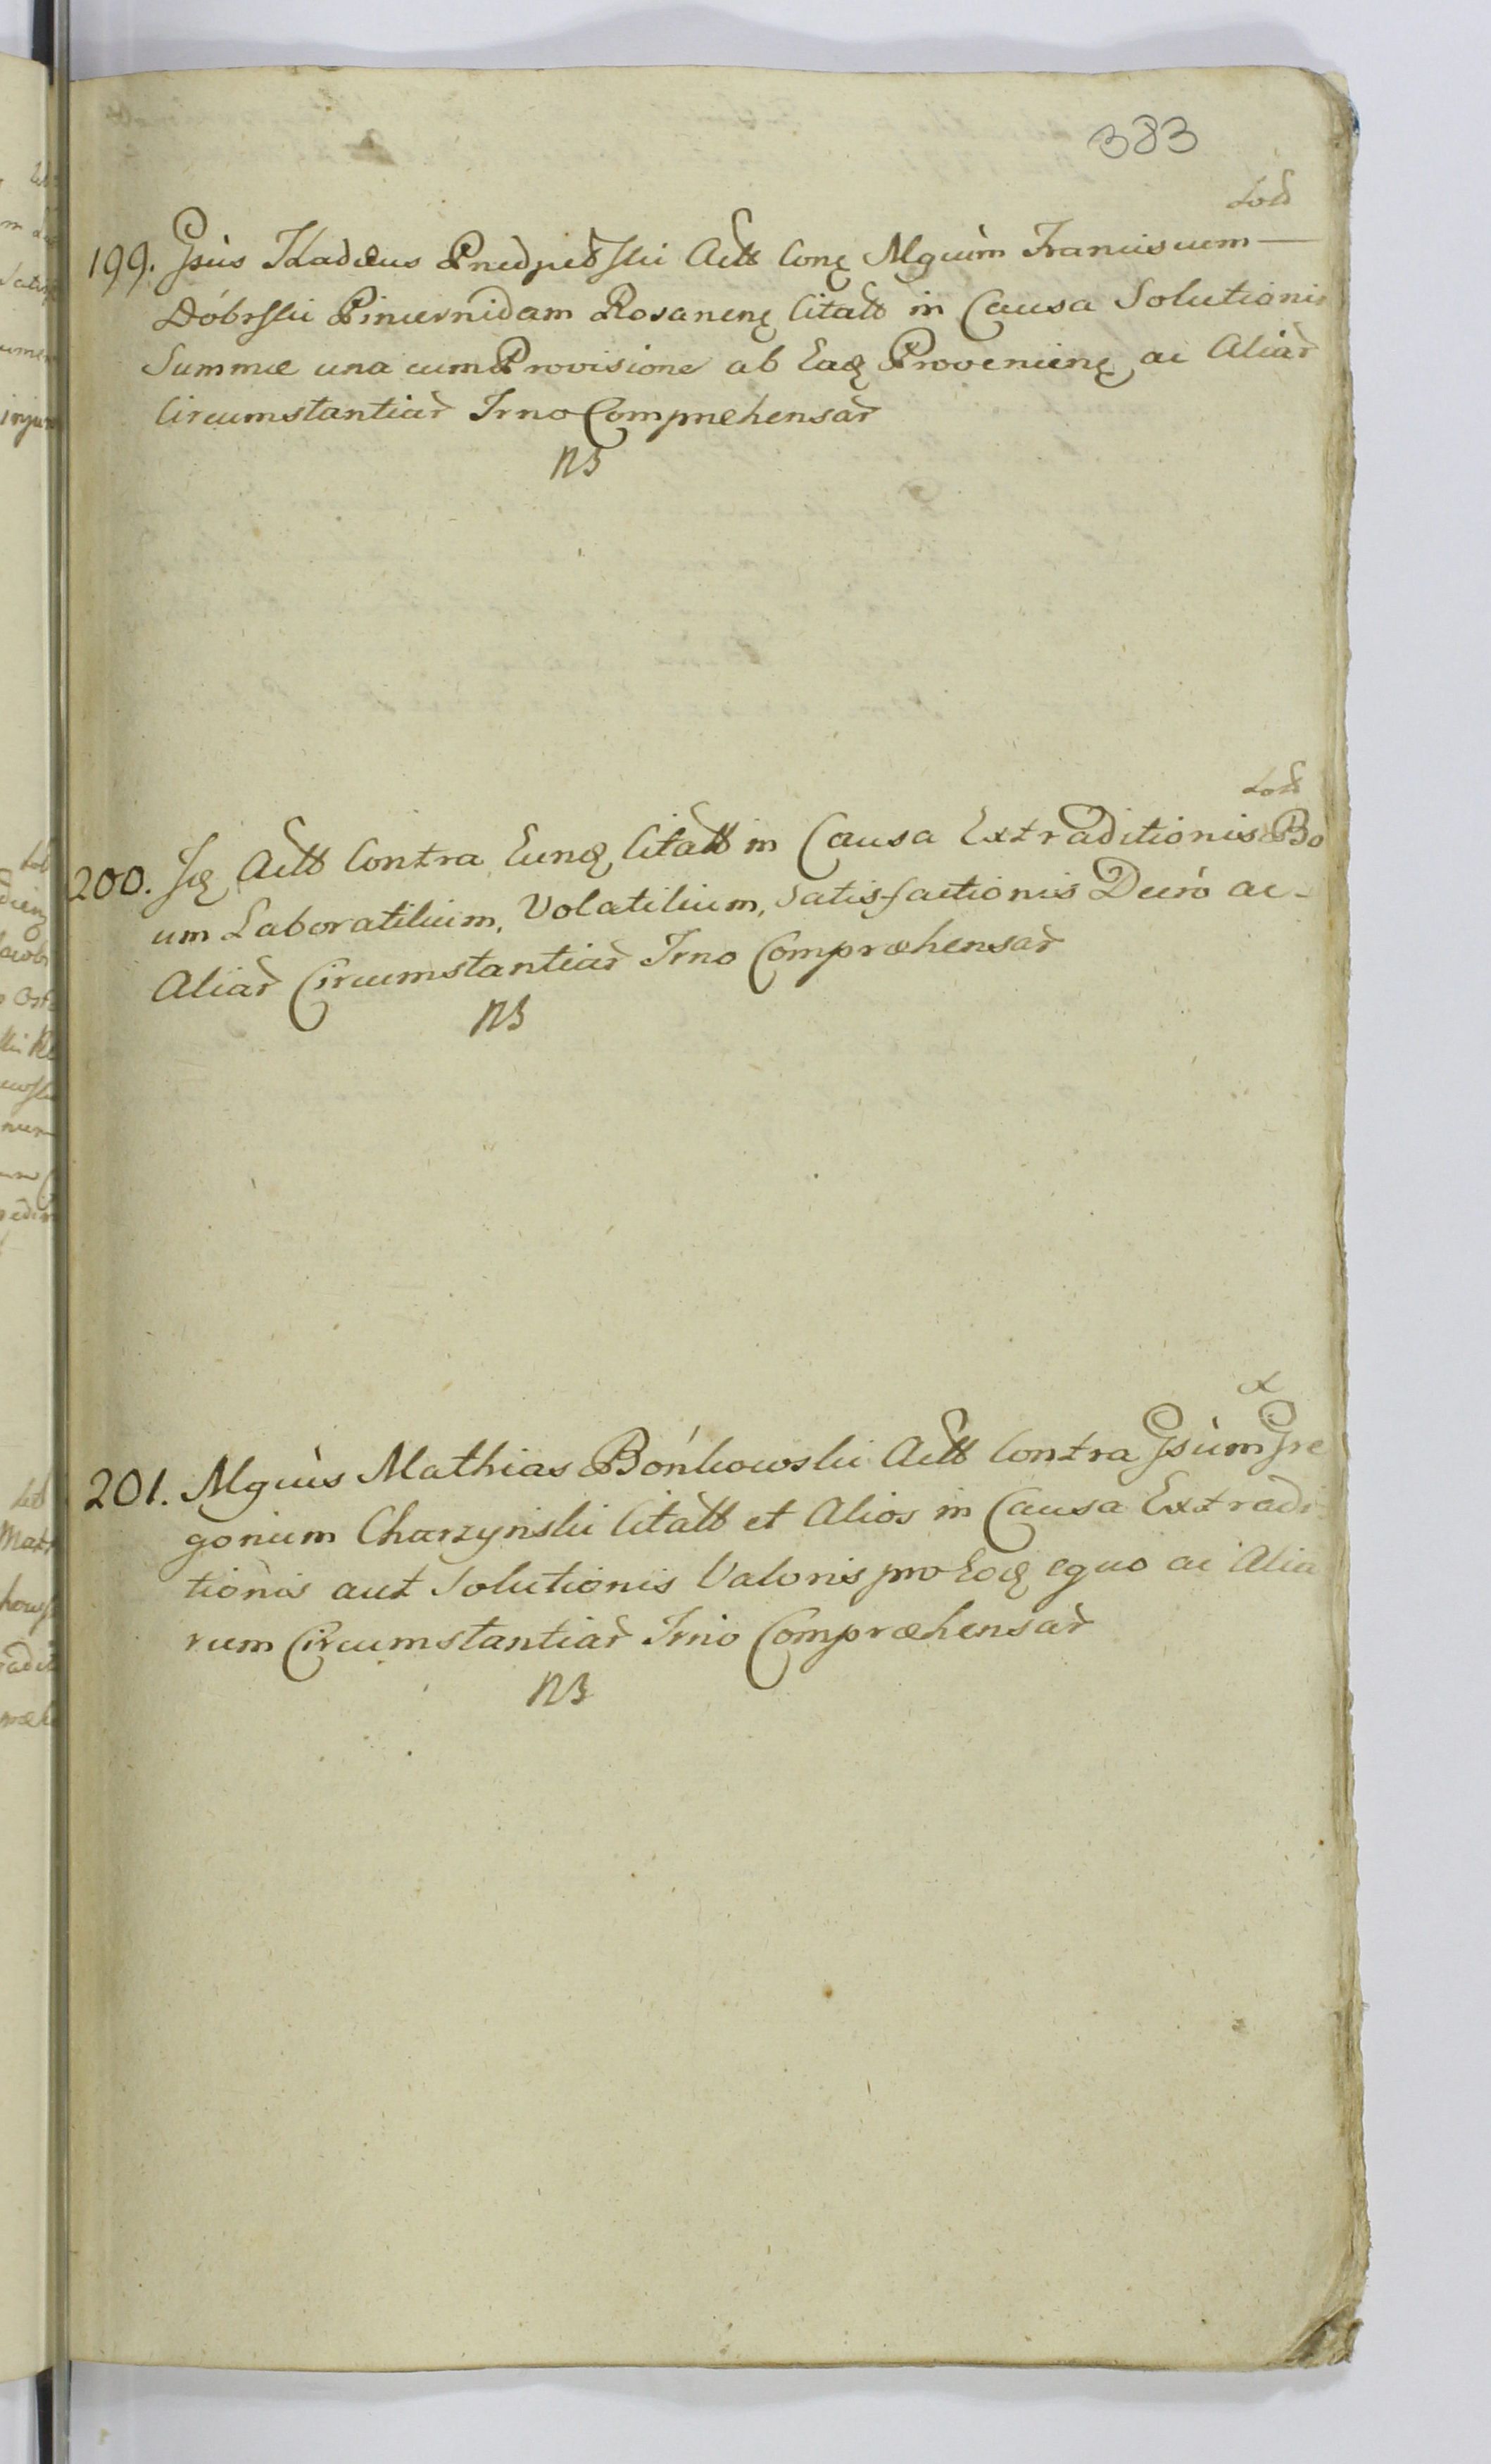 383
199. Gsus Thadæus Przedpełski Actt Conq Mgcum Franciscum—
Dóbrski Pincernidam Rosanenq Citatt in Causa Solutionis
Summæ una cum Provisione ab Eaq Provenienq ac Aliar
Circumstantiar Trno Compræhensar
NB
200. Jq Actt Contra Eunq Citatt in Causa Extraditionis Bo
um Laboratilium, Volatilium, Satisfactionis Decro ac-
Aliar Circumstantiar Trno Compræhensar
NB
201. Mgcus Mathias Bońkowski Actt Contra Gsum Gre
gorium Charzynski Citatt et Alios in Causa Extradi
tionis aut Solutionis Valoris pro Eoq equo ac Alia
rum Circumstantiar Trno Compræhensar
NB